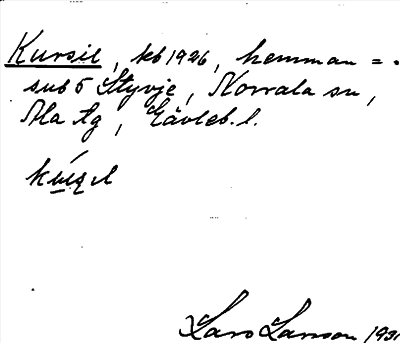 Kursil, kb 1926, hemman =
sub 5 Styvje, Norrala sn,
Ala tg, Gävleb. l.
Lars Larsson 1931